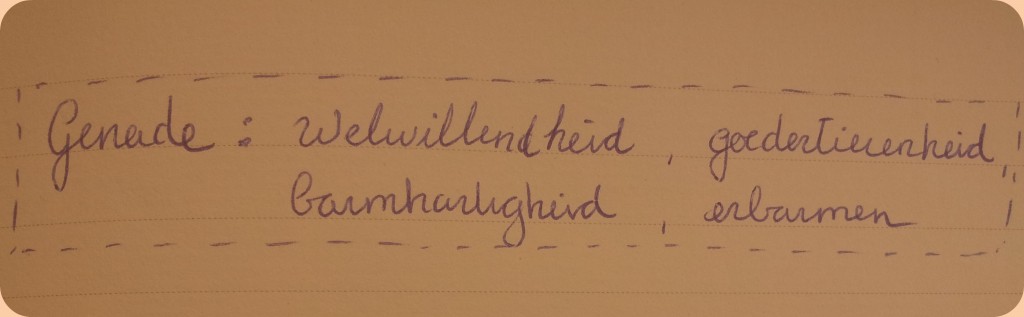 Genade : Welwillendheid, goedertierenheid,
barmhartigheid, erbarmen